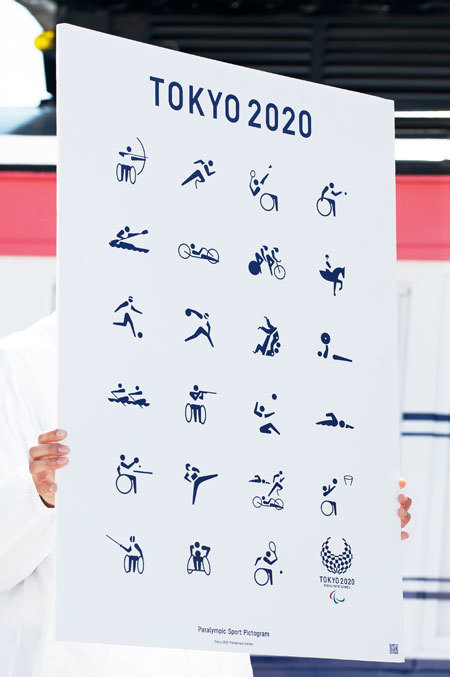 TOKYO 2020
TOKYO 2020
PARALYMPIC GAMES
Paralympic Sport Pictogram
Tokyo 2020 Paralympic Games